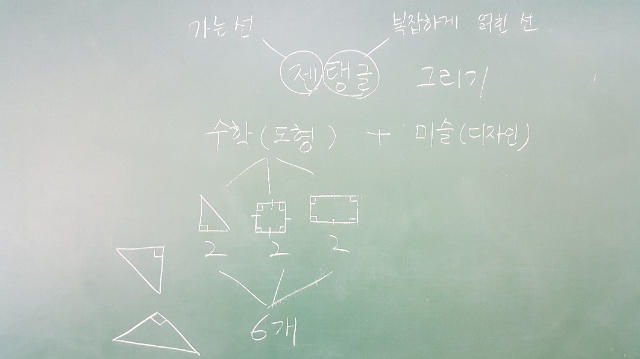 가는선 복잡하게 얽힌 선
젠탱글 그리기
수학(도형) + 미술(디자인)
2 2 2
6개